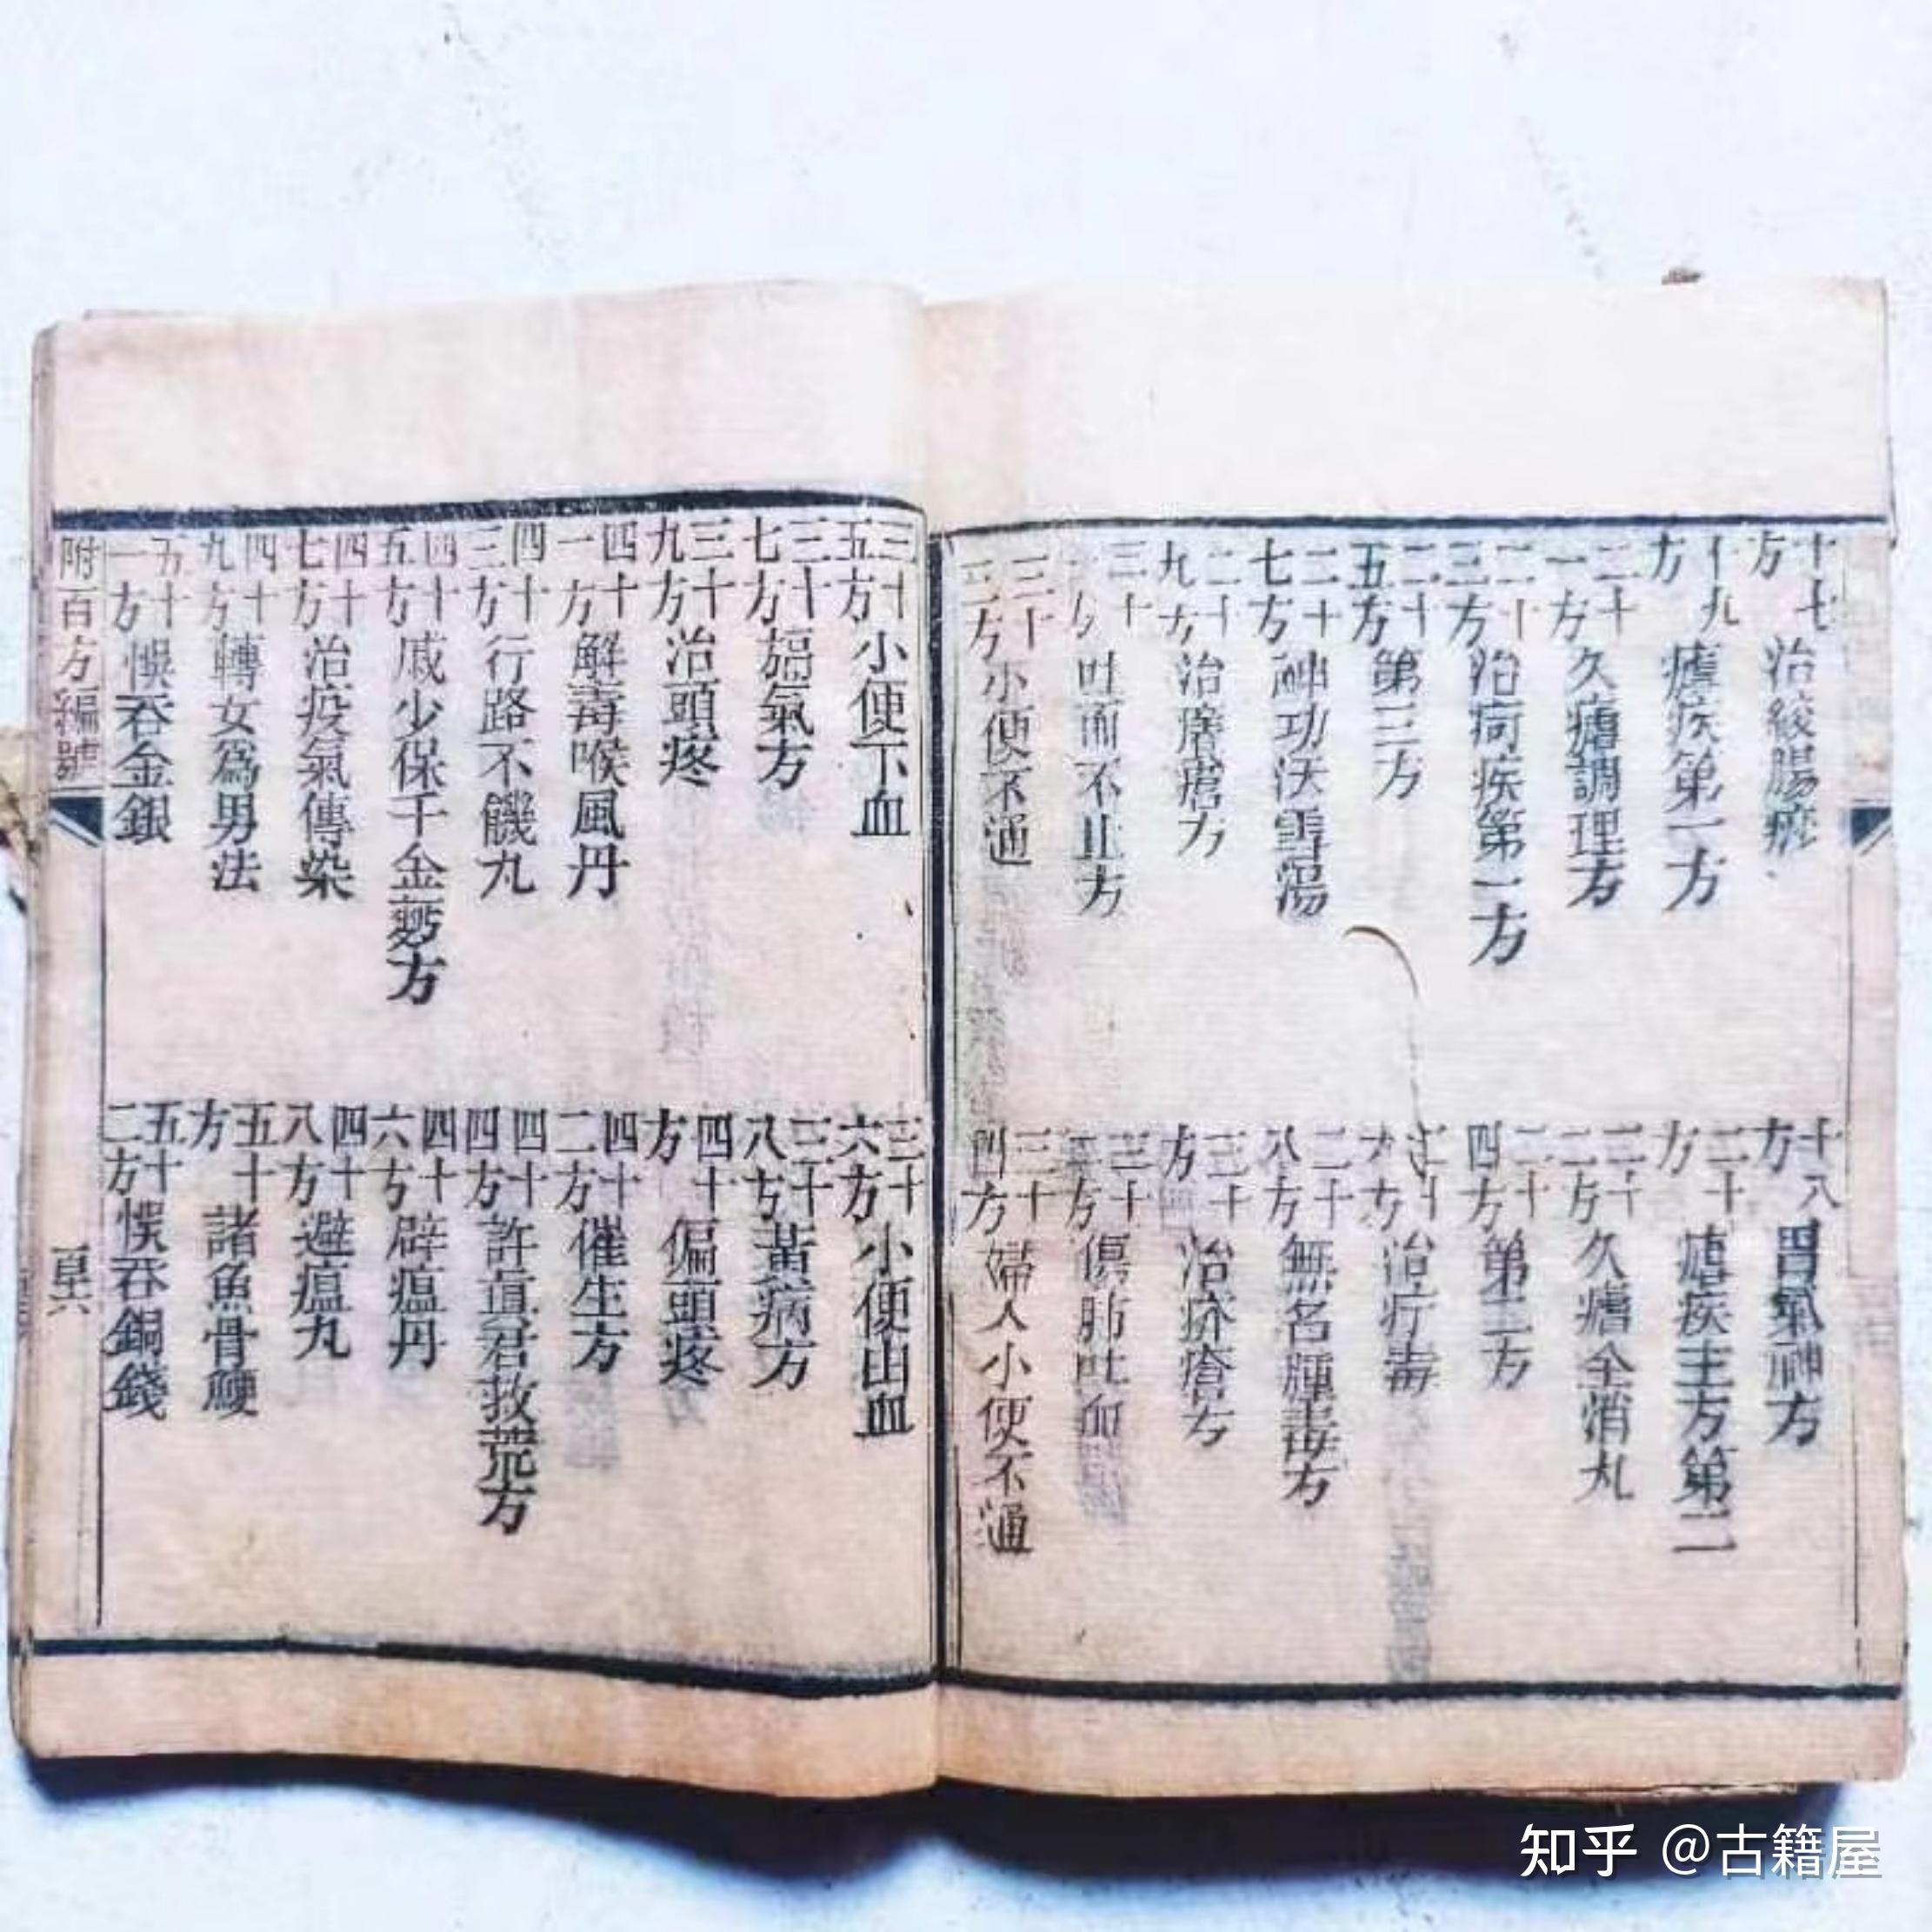 十七方 治絞腸痧
十八方 胃氣神方
十九方 瘧疾第一方
二十方 瘧疾主方第二
二十一方 久瘧調理方
二十二方 久瘧全消丸
二十三方 治痢疾第一方
二十四方 第二方
二十五方 第三方
二十六方 治疔毒
二十七方 神功沃雪湯
二十八方 無名腫毒方
二十九方 治瘡方
三十方 治疥瘡方
三十方 吐血不止方
三十方 傷肺吐血
三十三方 小便不通
三十四方 婦人小便不通
三十五方 小便下血
三十六方 小便出血
三十七方 氣方
三十八方 黃病方
三十九方 治頭疼
四十方 偏頭疼
四十一方 解毒喉風丹
四十二方 催生方
四十三方 行路不饑丸
四十四方 許真君救荒方
四十五方 戚少保千金方
四十六方 辟瘟丹
四十七方 治疫氣傳染
四十八方 避瘟丸
四十九方 轉女爲男法
五十方 諸魚骨鯁
五十一方 悞吞金銀
五十二方 悞吞銅錢
附百方編號
知乎 @古籍屋